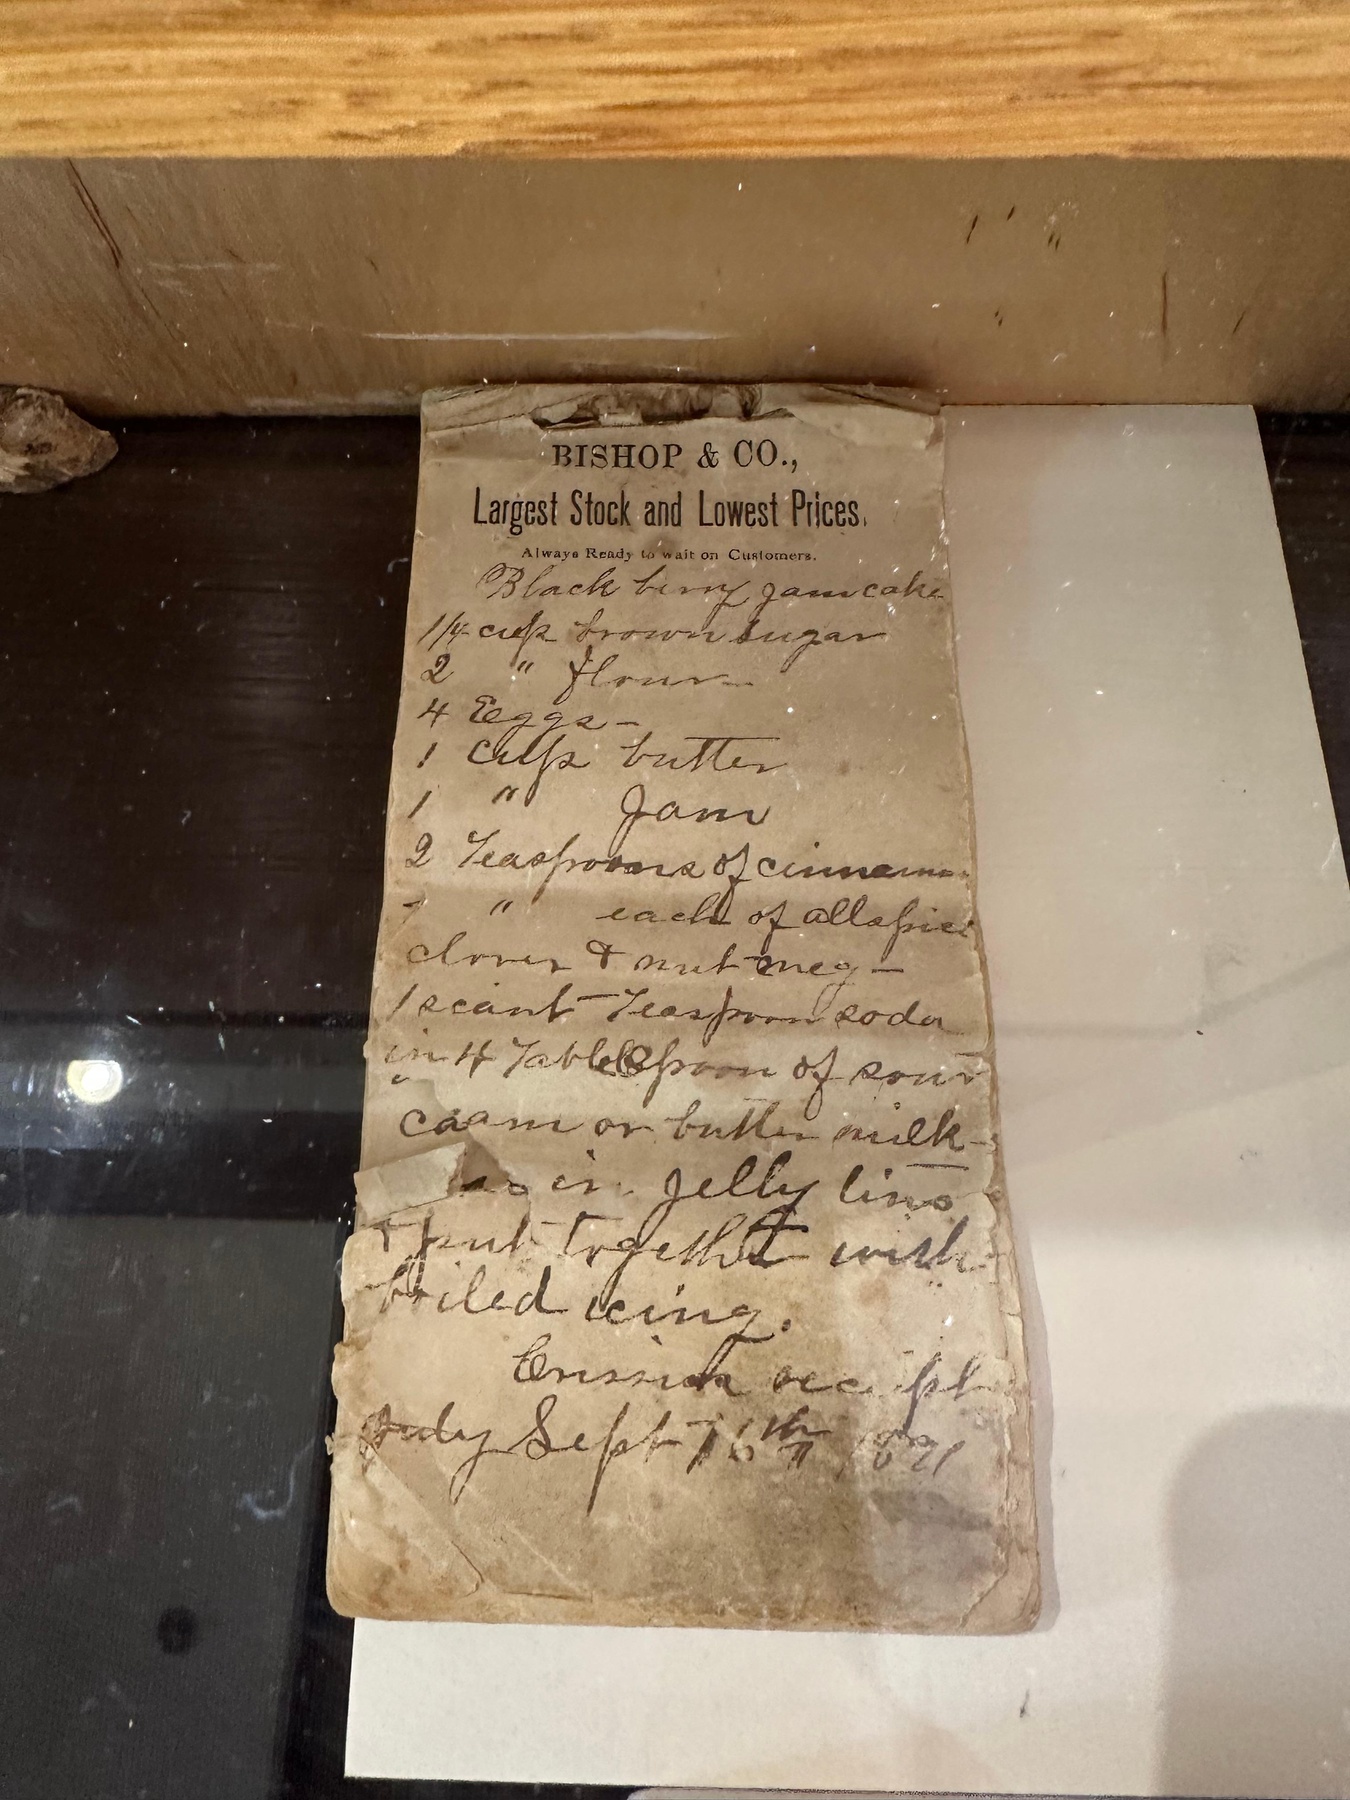 BISHOP & CO.,
Largest Stock and Lowest Prices.
Always Ready to wait on Customers.
Black berry Jam cake
1/4 cup brown sugar
2 " flour
4 Eggs -
1 cup butter
1 " Jam
2 Teaspoons of cinnamon
1 " each of allspice
cloves & nut meg -
1 scant Teaspoon soda
in 4 Tablespoon of sour
cream or butter milk -
in jelly tins
& put together with
boiled icing.
Sept 16th 1891